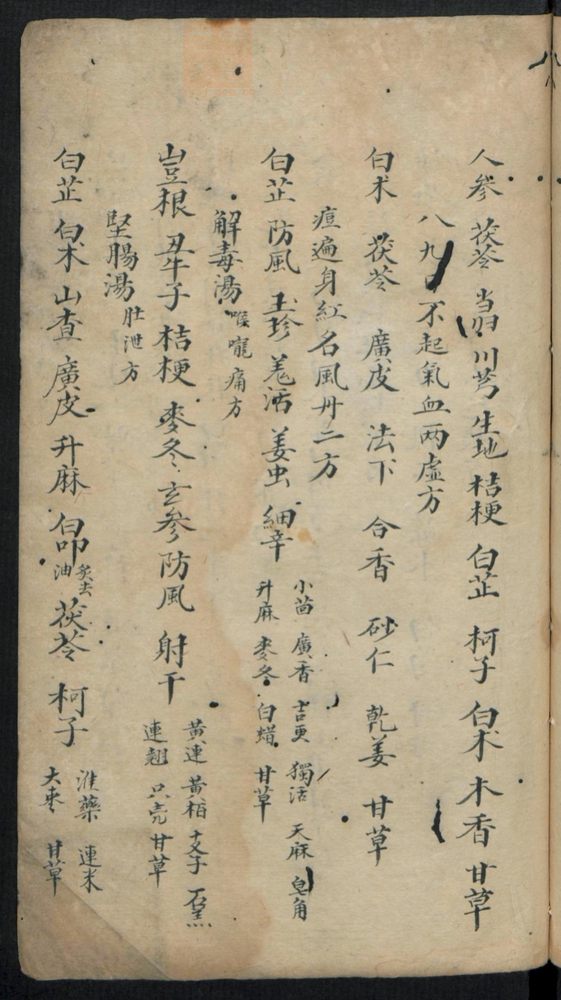 人參 茯苓 当归 川芎 生地 桔梗 白芷 柯子 白朮 木香 甘草
八九 不起氣血两虛方
白朮 茯苓 廣皮 法下 合香 砂仁 乹姜 甘草
痘遍身紅名風丹二方
白芷 防風 玉珍 羗活 姜虫 細辛 小茴 廣香 吉更 獨活 天麻 皂角
升麻 麥冬 白蜡 甘草
解毒湯 喉嚨痛方
豈根 丑牛子 桔梗 麥冬 玄參 防風 射干 黃連 黃栢 支子 石羔
連翹 只壳 甘草
堅腸湯 肚泄方
白芷 白朮 山查 廣皮 升麻 白叩 炙去油 茯苓 柯子 淮藥 連米
大枣 甘草